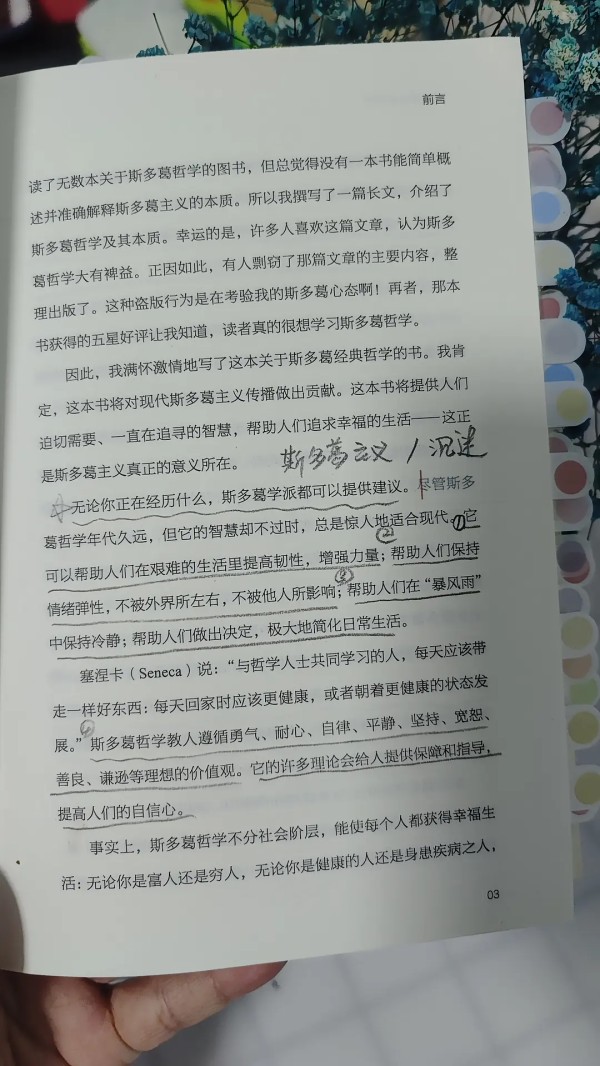 前言
读了无数本关于斯多葛哲学的图书，但总觉得没有一本书能简单概
述并准确解释斯多葛主义的本质。所以我撰写了一篇长文，介绍了
斯多葛哲学及其本质。幸运的是，许多人喜欢这篇文章，认为斯多
葛哲学大有裨益。正因如此，有人剽窃了那篇文章的主要内容，整
理出版了。这种盗版行为是在考验我的斯多葛心态啊！再者，那本
书获得的五星好评让我知道，读者真的很想学习斯多葛哲学。
因此，我满怀激情地写了这本关于斯多葛经典哲学的书。我肯
定，这本书将对现代斯多葛主义传播做出贡献。这本书将提供人们
迫切需要、一直在追寻的智慧，帮助人们追求幸福的生活——这正
是斯多葛主义真正的意义所在。
斯多葛主义 / 沉迷
无论你正在经历什么，斯多葛学派都可以提供建议。尽管斯多
葛哲学年代久远，但它的智慧却不过时，总是惊人地适合现代。①它
可以帮助人们在艰难的生活里提高韧性，增强力量；②帮助人们保持
情绪弹性，不被外界所左右，不被他人所影响；③帮助人们在“暴风雨”
中保持冷静；帮助人们做出决定，极大地简化日常生活。
塞涅卡（Seneca）说：“与哲学人士共同学习的人，每天应该带
走一样好东西：每天回家时应该更健康，或者朝着更健康的状态发
展。”④斯多葛哲学教人遵循勇气、耐心、自律、平静、坚持、宽恕、
善良、谦逊等理想的价值观。它的许多理论会给人提供保障和指导，
提高人们的自信心。
事实上，斯多葛哲学不分社会阶层，能使每个人都获得幸福生
活：无论你是富人还是穷人，无论你是健康的人还是身患疾病之人，
03